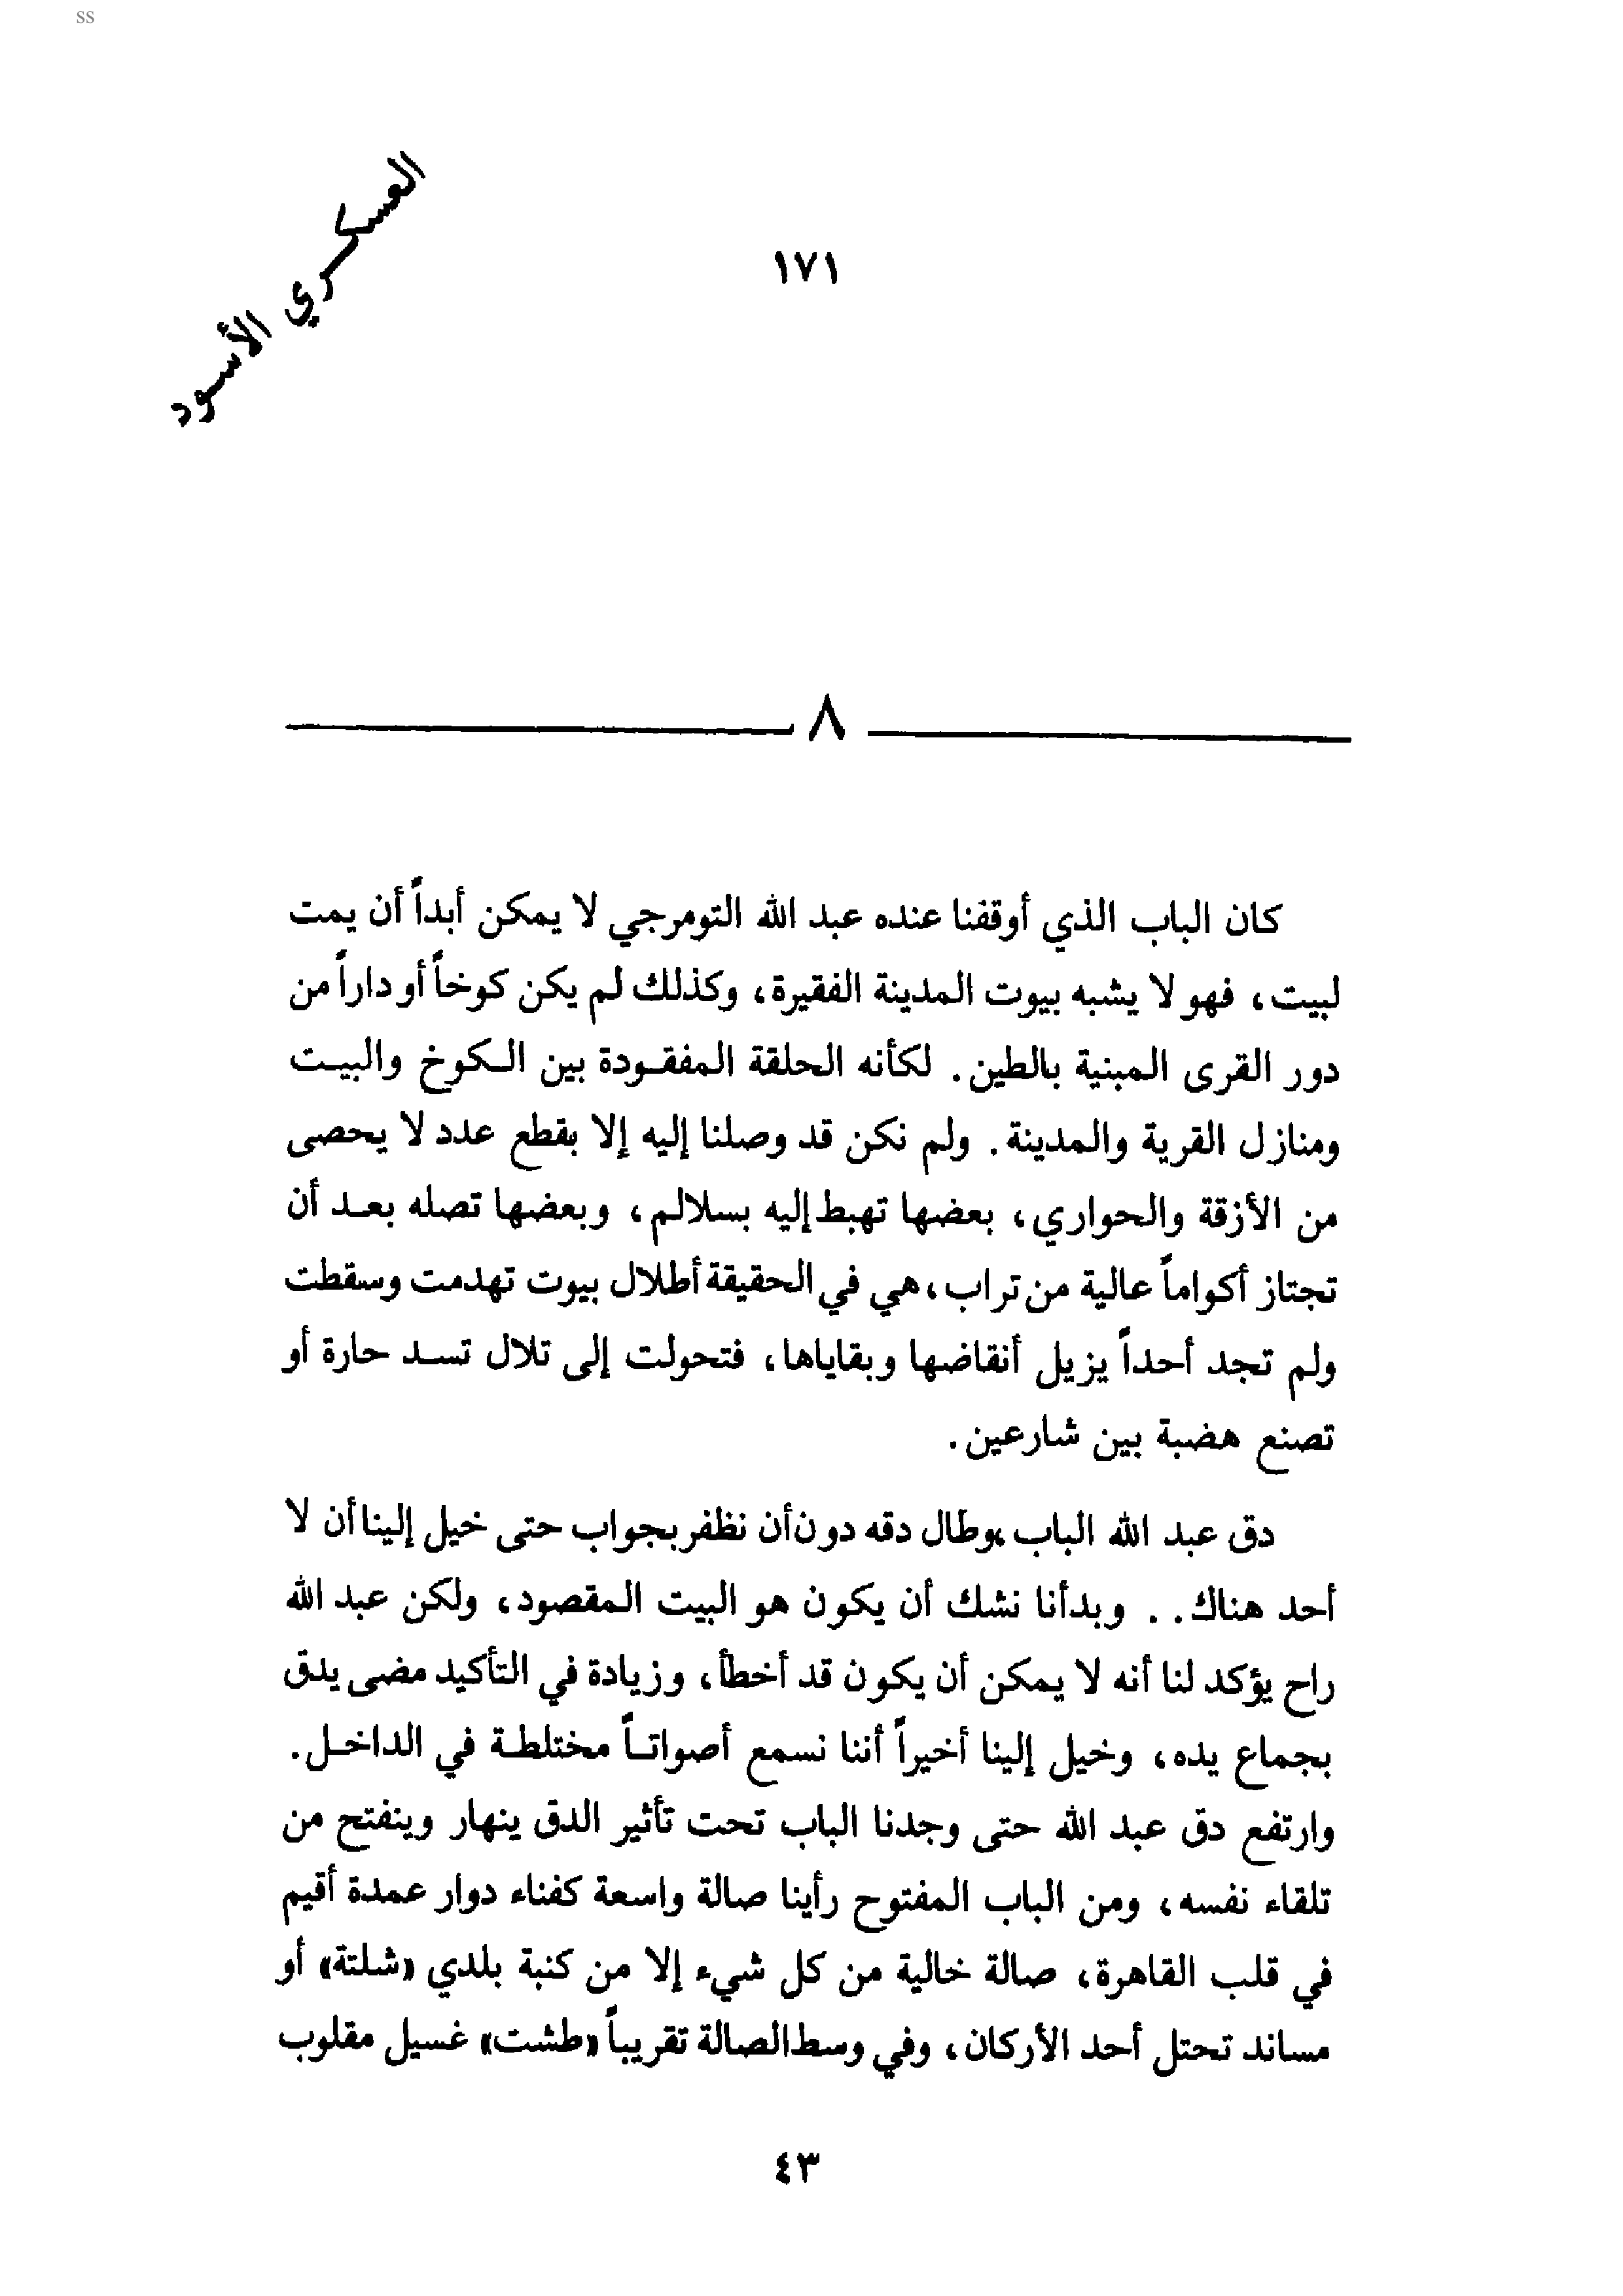 ss
العسكري الأسود
١٧١
٨
كان الباب الذي أوقفنا عنده عبد الله التومرجي لا يمكن أبداً أن يمت
لبيت، فهو لا يشبه بيوت المدينة الفقيرة، وكذلك لم يكن كوخاً أو داراً من
دور القرى المبنية بالطين. لكأنه الحلقة المفقودة بين الكوخ والبيت
ومنازل القرية والمدينة. ولم نكن قد وصلنا إليه إلا بقطع عدد لا يحصى
من الأزقة والحواري، بعضها تهبط إليه بسلالم، وبعضها تصله بعد أن
تجتاز أكواماً عالية من تراب، هي في الحقيقة أطلال بيوت تهدمت وسقطت
ولم تجد أحداً يزيل أنقاضها وبقاياها، فتحولت إلى تلال تسد حارة أو
تصنع هضبة بين شارعين.
دق عبد الله الباب، وطال دقه دون أن نظفر بجواب حتى خيل إلينا أن لا
أحد هناك. . وبدأنا نشك أن يكون هو البيت المقصود، ولكن عبد الله
راح يؤكد لنا أنه لا يمكن أن يكون قد أخطأ، وزيادة في التأكيد مضى يدق
بجماع يده، وخيل إلينا أخيراً أننا نسمع أصواتاً مختلطة في الداخل.
وارتفع دق عبد الله حتى وجدنا الباب تحت تأثير الدق ينهار وينفتح من
تلقاء نفسه، ومن الباب المفتوح رأينا صالة واسعة كفناء دوار عمدة أقيم
في قلب القاهرة، صالة خالية من كل شيء إلا من كنبة بلدي «شلتة» أو
مساند تحتل أحد الأركان، وفي وسط الصالة تقريباً «طشت» غسيل مقلوب
٤٣